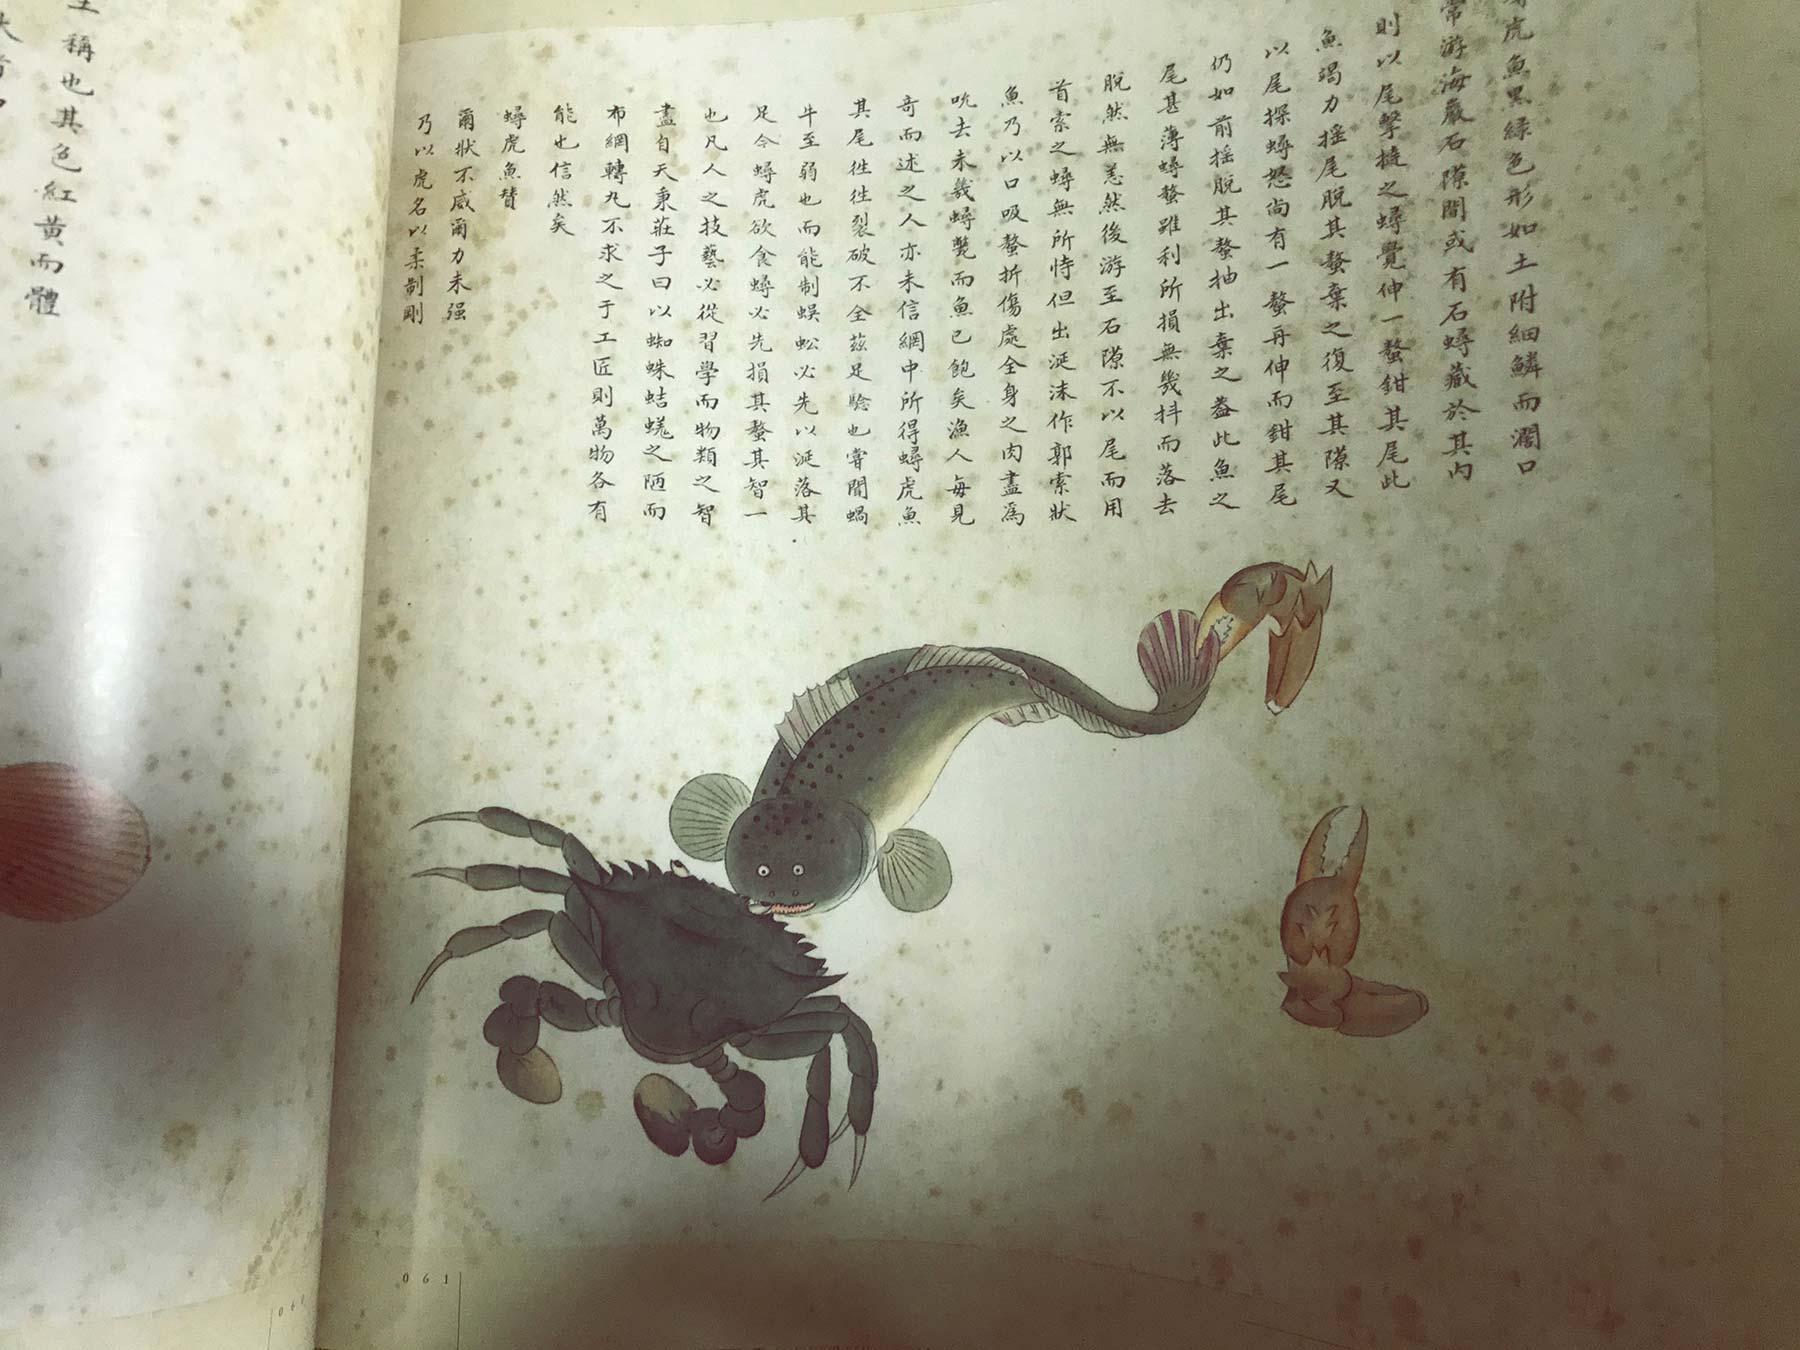 虎魚黑綠色形如土附細鱗而濶口
常游海巖石隙間或有石蟳藏於其內
則以尾擊撓之蟳覺伸一螯鉗其尾此
魚竭力搖尾脫其螯棄之復至其隙又
以尾探蟳怒尚有一螯再伸而鉗其尾
仍如前搖脫其螯抽出棄之葢此魚之
尾甚薄蟳螯雖利所損無幾抖而落去
脫然無恙然後游至石隙不以尾而用
首索之蟳無所恃但出涎沫作郭索狀
魚乃以口吸螯折傷處全身之肉盡為
吮去未幾蟳斃而魚已飽矣漁人每見
奇而述之人亦未信網中所得蟳虎魚
其尾徃徃裂破不全茲足驗也嘗聞蝸
牛至弱也而能制蜈蚣必先以涎落其
足今蟳虎欲食蟳必先損其螯其智一
也凡人之技藝必從習學而物類之智
盡自天秉莊子曰以蜘蛛蛣蜣之陋而
布網轉丸不求之于工匠則萬物各有
能也信然矣
蟳虎魚贊
爾狀不威爾力未强
乃以虎名以柔制剛
稱也其色紅黃而體
061